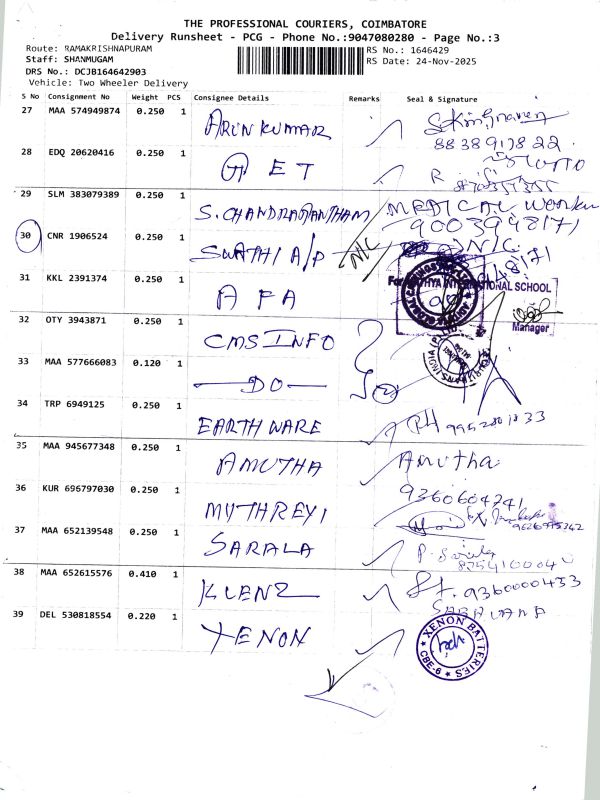 THE PROFESSIONAL COURIERS, COIMBATORE
Delivery Runsheet - PCG - Phone No.:9047080280 - Page No.:3
Route: RAMAKRISHNAPURAM RS No.: 1646429
Staff: SHANMUGAM RS Date: 24-Nov-2025
DRS No.: DCJB164642903
Vehicle: Two Wheeler Delivery
S No Consignment No Weight PCS Consignee Details Remarks Seal & Signature
27 MAA 574949874 0.250 1 ARUN KUMAR
28 EDQ 20620416 0.250 1 A E T
29 SLM 383079389 0.250 1 S. CHANDRAKANTHAM MEDICAL
30 CNR 1906524 0.250 1 SWATHI A/P N/C
31 KKL 2391374 0.250 1 A F A
INTERNATIONAL SCHOOL
Manager
32 OTY 3943871 0.250 1 CMS INFO
33 MAA 577666083 0.120 1 DO
34 TRP 6949125 0.250 1 EARTH WARE
35 MAA 945677348 0.250 1 AMUTHA Amutha
9360604241
36 KUR 696797030 0.250 1 MYTHREYI
37 MAA 652139548 0.250 1 SARALA
38 MAA 652615576 0.410 1 KLENZ 9360000433
39 DEL 530818554 0.220 1 XENON
XENON BATTERIES
CBE-6